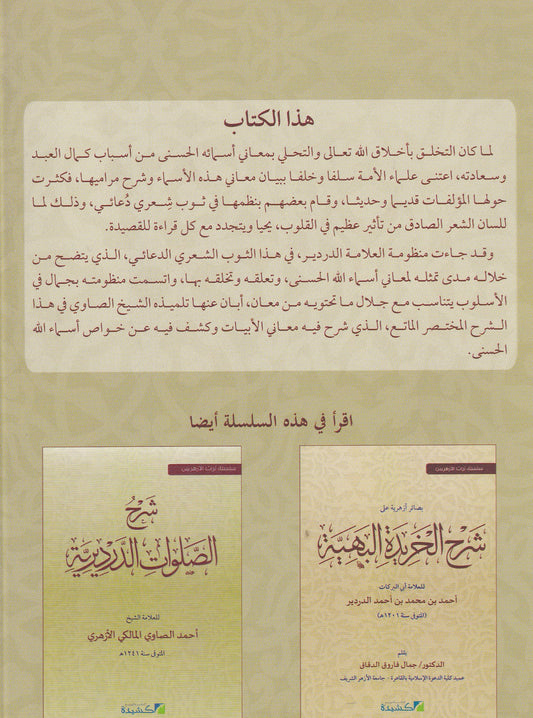 هذا الكتاب
لما كان التخلق بأخلاق الله تعالى والتحلي بمعاني أسمائه الحسنى من أسباب كمال العبد
وسعادته، اعتنى علماء الأمة سلفا وخلفا ببيان معاني هذه الأسماء وشرح مراميها، فكثرت
حولها المؤلفات قديما وحديثا، وقام بعضهم بنظمها في ثوب شعري دُعائي، وذلك لما
للسان الشعر الصادق من تأثير عظيم في القلوب، يحيا ويتجدد مع كل قراءة للقصيدة.
وقد جاءت منظومة العلامة الدردير، في هذا الثوب الشعري الدعائي، الذي يتضح من
خلاله مدى تمثله لمعاني أسماء الله الحسنى، وتعلقه وتخلقه بها، واتسمت منظومته بجمال في
الأسلوب يتناسب مع جلال ما تحتويه من معان، أبان عنها تلميذه الشيخ الصاوي في هذا
الشرح المختصر الماتع، الذي شرح فيه معاني الأبيات وكشف فيه عن خواص أسماء الله
الحسنى.
اقرأ في هذه السلسلة أيضا
سلسلة تراث الأزهريين
بصائر أزهرية على
شرح الخريدة البهية
للعلامة أبي البركات
أحمد بن محمد بن أحمد الدردير
(المتوفى سنة ١٢٠١هـ)
بقلم
الدكتور/ جمال فاروق الدقاق
عميد كلية الدعوة الإسلامية بالقاهرة - جامعة الأزهر الشريف
كشيدة
سلسلة تراث الأزهريين
شرح
الصلوات الدرديرية
للعلامة الشيخ
أحمد الصاوي المالكي الأزهري
المتوفى سنة ١٢٤١هـ
كشيدة